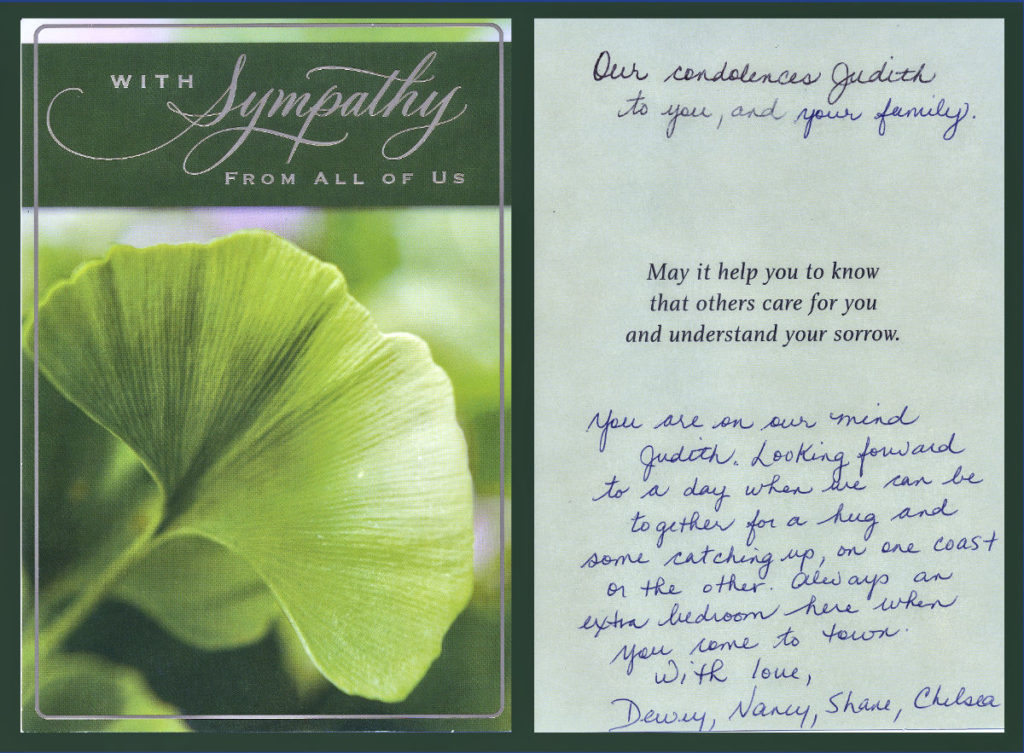 WITH Sympathy
FROM ALL OF US
Our condolences Judith
to you, and your family.
May it help you to know
that others care for you
and understand your sorrow.
You are on our mind
Judith. Looking forward
to a day when we can be
together for a hug and
some catching up, on one coast
or the other. Always an
extra bedroom here when
you come to town.
With love,
Dewey, Nancy, Shane, Chelsea